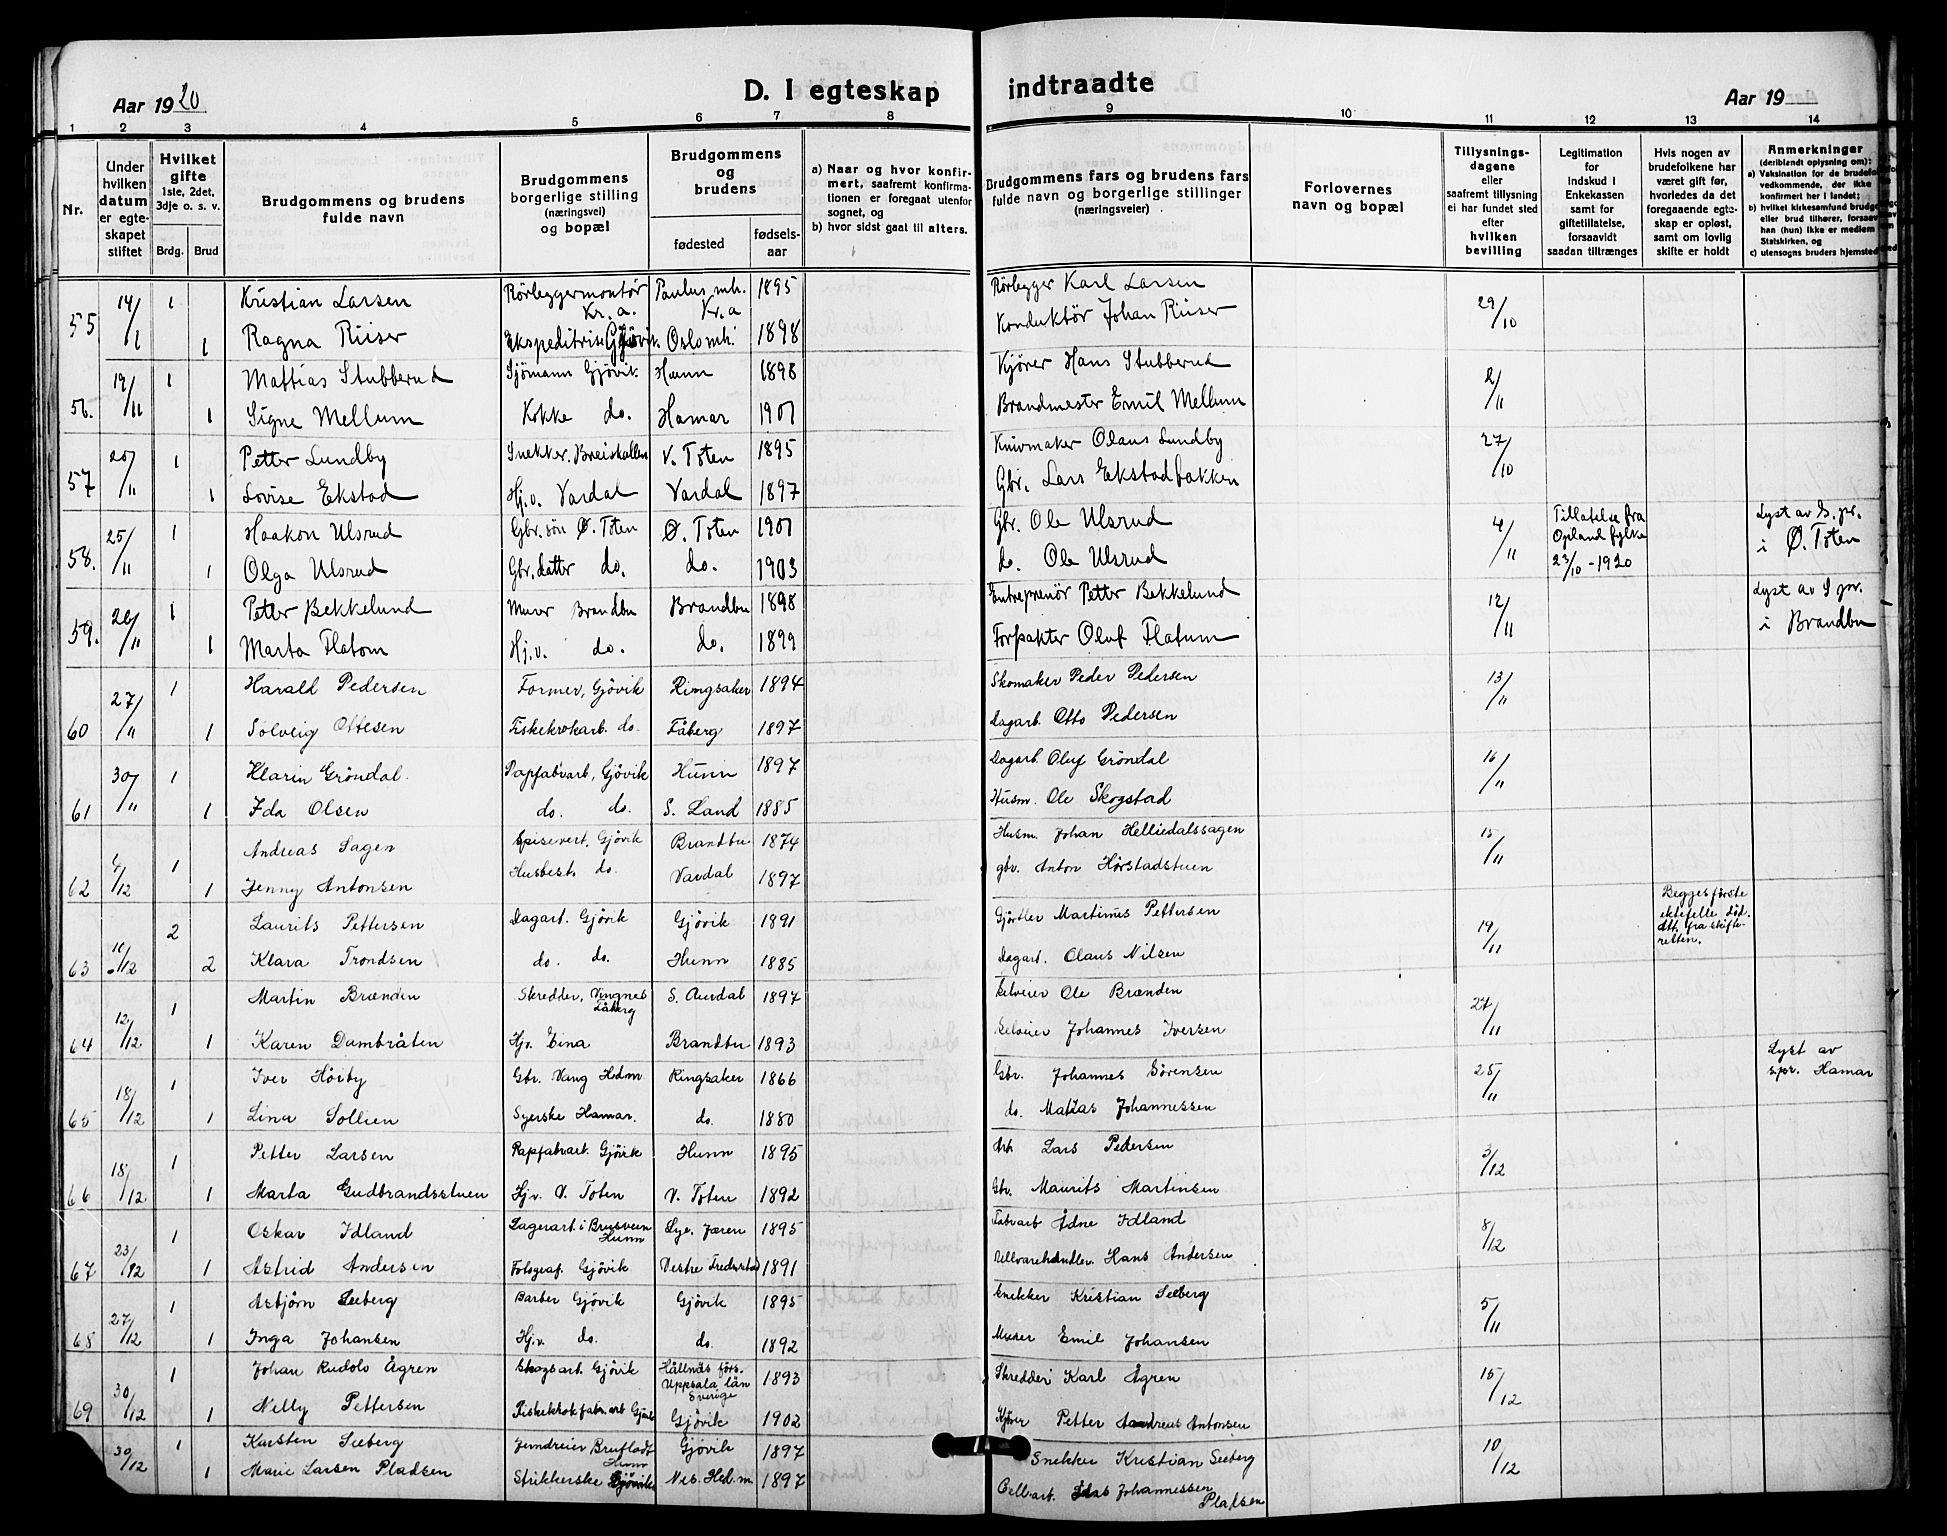 Aar 1920
D. I egteskap
indtraadte
Aar 19
1 2 3 4 5 6 7 8 9 10 11 12 13 14
Nr.
Under hvilken datum er egteskapet stiftet
Hvilket gifte 1ste, 2det, 3dje o. s. v.
Brdg. Brud
Brudgommens og brudens fulde navn
Brudgommens borgerlige stilling (næringsvei) og bopæl
Brudgommens og brudens
fødested fødselsaar
a) Naar og hvor konfirmert, saafremt konfirmationen er foregaat utenfor sognet, og
b) hvor sidst gaat til alters.
Brudgommens fars og brudens fars fulde navn og borgerlige stillinger (næringsveier)
Forlovernes navn og bopæl
Tillysningsdagene eller saafremt tillysning ei har fundet sted efter hvilken bevilling
Legitimation for indskud i Enkekassen samt for giftetillatelse, forsaavidt saadan tiltrænges
Hvis nogen av brudefolkene har været gift før, hvorledes da det foregaaende egteskap er opløst, samt om lovlig skifte er holdt
Anmerkninger (deriblandt oplysning om):
a) Vaksination for de brudefo vedkommende, der ikke konfirmert her i landet;
b) hvilket kirkesamfund brudgo eller brud tilhører, forsaav han (hun) ikke er medlem Statskirken, og
c) utensogns bruders hjemsted
55 14/ 1 Kristian Larsen Rörleggermontør Kr.a. Paulus mh. Kr.a 1895 Rörlegger Karl Larsen 29/10
1 Ragna Riiser Ekspeditrise Gjövik Oslo mh. 1898 Konduktör Johan Riiser
56. 19/11 1 Mattias Stubberud Sjömann Gjövik Hunn 1898 Kjörer Hans Stubberud 2/11
1 Signe Mellum Kokke do. Hamar 1901 Brandmester Emil Mellum
57 20/11 1 Petter Lundby Snekker. Breiskallen V. Toten 1895 Knivmaker Olaus Lundby 27/10
1 Lovise Ekstad Hj.v. Vardal Vardal 1897 Gbr. Lars Ekstadbakken
58. 25/11 1 Haakon Ulsrud Gbr. søn Ø. Toten Ø. Toten 1901 Gbr. Ole Ulsrud 4/11 Tillatelse fra Opland fylke 23/10-1920 Lyst av S. pr. i Ø. Toten
1 Olga Ulsrud Gbr. datter do. do. 1903 do. Ole Ulsrud
59. 26/11 1 Petter Bekkelund Murer Brandbu Brandbu 1898 Entreprenör Petter Bekkelund 12/11 Lyst av S pr. i Brandbu
1 Marta Flatom Hj.v. do. do. 1899 Forpakter Oluf Flatum
60 27/11 1 Harald Pedersen Former, Gjövik Ringsaker 1894 Skomaker Peder Pedersen 13/11
1 Solveig Ottesen Fiskekrokarb. do. Fåberg 1897 Dagarb. Otto Pedersen
61 30/11 1 Klarin Gröndal. Papfabarb, Gjövik Hunn 1897 Dagarb. Oluf Gröndal 16/11
1 Ida Olsen do. do. S. Land 1885 Husm. Ole Skogstad
62 /12 1 Andreas Sagen Spisevert, Gjövik Brandbu 1874 Husm. Johan Helliedalssagen 15/11
1 Jenny Antonsen Husbest. do. Vardal 1897 gbr. Anton Hörstadstuen
63 10/12 2 Laurits Pettersen Dagarb. Gjövik Gjövik 1891 Gjørtler Martinus Pettersen 19/11 Begges förste ektefelle död. Att. fra skifteretten.
2 Klara Trondsen do. do. Hunn 1885 Dagarb. Olaus Nilsen
64 12/12 1 Martin Brænden Skredder, Vingnes Fåberg S. Aurdal 1897 Selveier Ole Brænden 27/11
1 Karen Dambråten Hjv. Eina Brandbu 1893 Selveier Johannes Iversen
65 18/12 1 Iver Hörby Gbr. Vang Hedm. Ringsaker 1866 Gbr. Johannes Sörensen 25/11 Lyst av spr. Hamar
1 Lina Sollien Syerske Hamar. do. 1880 do. Matias Johannessen
66 18/12 1 Petter Larsen Papfabarb. Gjövik Hunn 1895 Arb Lars Pedersen 3/12
1 Marta Gudbrandsstuen Hjv. V. Toten V. Toten 1892 Gbr. Maurits Martinsen
67 23/12 1 Oskar Idland Lagerarb. i Brusveen Hunn Lye, Jæren 1895 Fabrarb Ådne Idland 8/12
1 Astrid Andersen Fotograf. Gjövik. Vestre Fredrikstad 1891 Uldvarehandler. Hans Andersen
68 27/12 1 Asbjörn Seeberg Barber Gjövik Gjövik 1895 Snekker Kristian Seeberg 5/11
1 Inga Johansen Hj.v. do. do. 1892 Murer Emil Johansen
69 30/12 1 Johan Rudolo Ågren Skogsarb. Gjövik Hållnäs förs. Uppsala län Sverige 1893 Skredder Karl Ågren 15/12
1 Nelly Pettersen Fiskekrokfabr. arb Gjövik Gjövik 1902 Kjörer Petter Andreas Antonsen
30/12 1 Karsten Seeberg Jerndreier Brufladt Hunn Gjövik 1897 Snekker Kristian Seeberg 10/12
1 Marie Larsen Pladsen Strikkerske Gjövik Nes. Hedm 1897 Cellarb. Lars Johannessen Pladsen